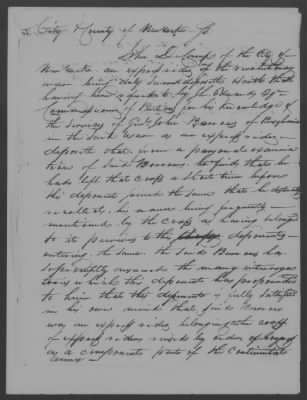 City & County of New York Ss.
John DeCamp of the City of
New York an express rider in the revolutionary
war being duly sworn deposeth & saith that
having been spoken to by the
Commissioner of Pensions for his knowledge of
the services of John Burrows of Pennsylvania
in the said War as an express rider
deposeth that given a personal examina
tion of said Burrows, he finds that he
had left that Corps a short time before
this deponent joined the same that he distinctly
recollects his name being frequently
mentioned by the Corps as having belong
to it previous to the deponents
entering the same. The said Burrows has
sufficiently answered the many interroga
tories which this deponent has propounded
to him that this deponent is fully satisfied
in his own mind that said Burrows
was an express rider belonging to the corps
of express riders raised by order of Congress
as a component part of the Continental
army